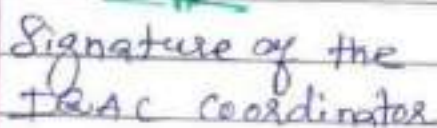 Signature of the
IQAC Coordinator